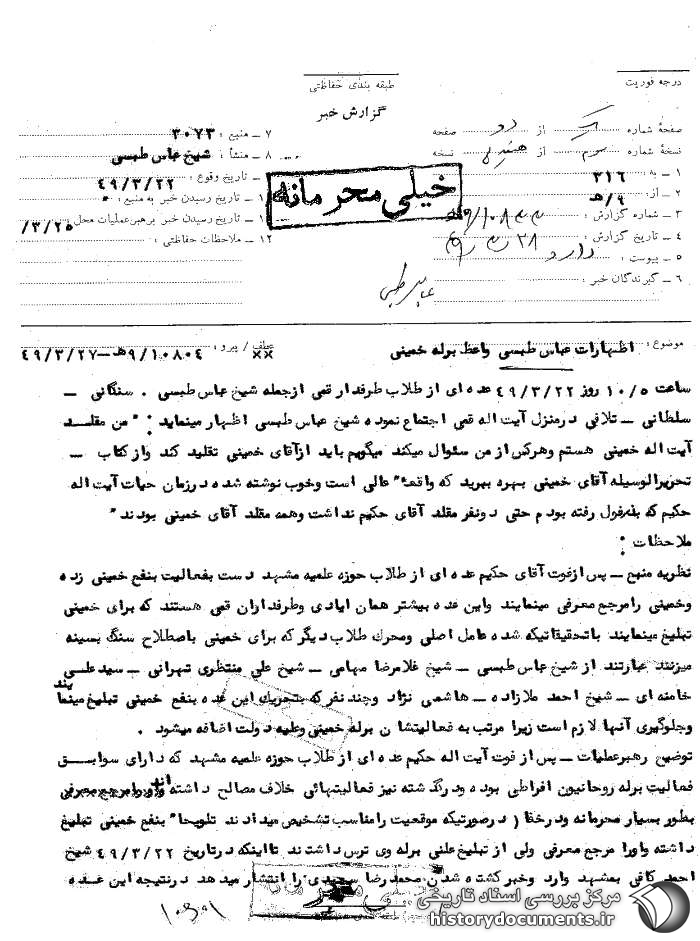 درجه فوریت
طبقه بندی حفاظتی
گزارش خبر
صفحهٔ شماره یک از دو صفحه
نسخهٔ شماره سوم از نسخه
۱ – به : ۳۱۶
۲ – از : ۹/هـ
۳ – شماره گزارش :
۴ – تاریخ گزارش :
۵ – پیوست : دارد
۶ – گیرندگان خبر :
۷ – منبع : ۳۰۷۳
۸ – منشأ : شیخ عباس طبسی
– تاریخ وقوع : ۴۹/۳/۲۲
۱ – تاریخ رسیدن خبر به منبع :
۱ – تاریخ رسیدن خبر برهبر عملیات محل : /۳/۲۵
۱۲ – ملاحظات حفاظتی :
خیلی محرمانه
عباس طبسی
موضوع : اظهارات عباس طبسی واعظ برله خمینی
عطف / پیرو : ۹/۱۰۸۰۴هـ–۴۹/۳/۲۷
ساعت ۱۰/۵ روز ۴۹/۳/۲۲ عده ای از طلاب طرفدار قمی ازجمله شیخ عباس طبسی . سنگانی –
سلطانی – تلافی درمنزل آیت اله قمی اجتماع نموده شیخ عباس طبسی اظهار مینماید : " من مقلد
آیت اله خمینی هستم وهرکس از من سئوال میکند میگویم باید ازآقای خمینی تقلید کند وازکتاب –
تحریرالوسیله آقای خمینی بهره ببرید که واقعا" عالی است وخوب نوشته شده درزمان حیات آیت اله
حکیم که بدزفول رفته بودم حتی دونفر مقلد آقای حکیم نداشت وهمه مقلد آقای خمینی بودند "
ملاحظات :
نظریه منبع – پس ازفوت آقای حکیم عده ای از طلاب حوزه علمیه مشهد دست بفعالیت بنفع خمینی زده
وخمینی رامرجع معرفی مینمایند واین عده بیشتر همان ایادی وطرفداران قمی هستند که برای خمینی
تبلیغ مینمایند باتحقیقاتیکه شده عامل اصلی ومحرک طلاب دیگر که برای خمینی باصطلاح سنگ بسینه
میزنند عبارتند از شیخ عباس طبسی – شیخ غلامرضا مهامی – شیخ علی منتظری تهرانی – سیدعلی
خامنه ای – شیخ احمد ملازاده – هاشمی نژاد وچند نفر که بتحریک این عده بنفع خمینی تبلیغ مینمایند
وجلوگیری آنها لازم است زیرا مرتب به فعالیتشان برله خمینی وعلیه دولت اضافه میشود .
توضیح رهبرعملیات – پس از فوت آیت اله حکیم عده ای از طلاب حوزه علمیه مشهد که دارای سوابق
فعالیت برله روحانیون افراطی بوده ودرگذشته نیز فعالیتهائی خلاف مصالح داشته اند
بطور بسیار محرمانه ودرخفا ( درصورتیکه موقعیت رامناسب تشخیص میدادند تلویحا" بنفع خمینی تبلیغ
داشته واورا مرجع معرفی ولی از تبلیغ علنی برله وی ترس داشتند تااینکه درتاریخ ۴۹/۳/۲۲ شیخ
احمد کافی بمشهد وارد وخبر کشته شدن محمدرضا سعیدی را انتشار میدهد درنتیجه این عده
مرکز بررسی اسناد تاریخی
historydocuments.ir